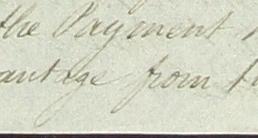 the Payment
antage from